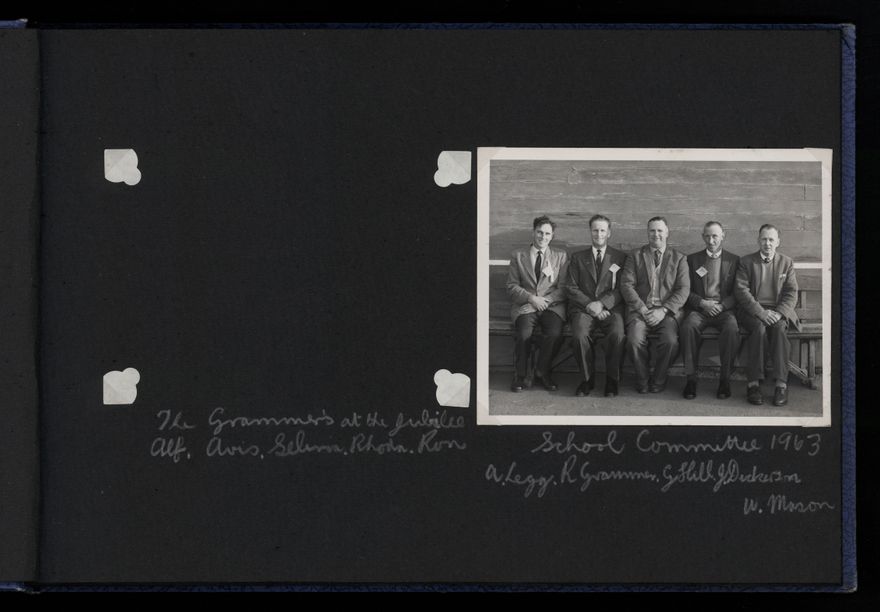 The Grammer's at the Jubilee
Alf, Avis, Selma, Rhoda, Ron
School Committee 1963
A. Legg. R Grammer. G Hill J Dickerson
W. Mason